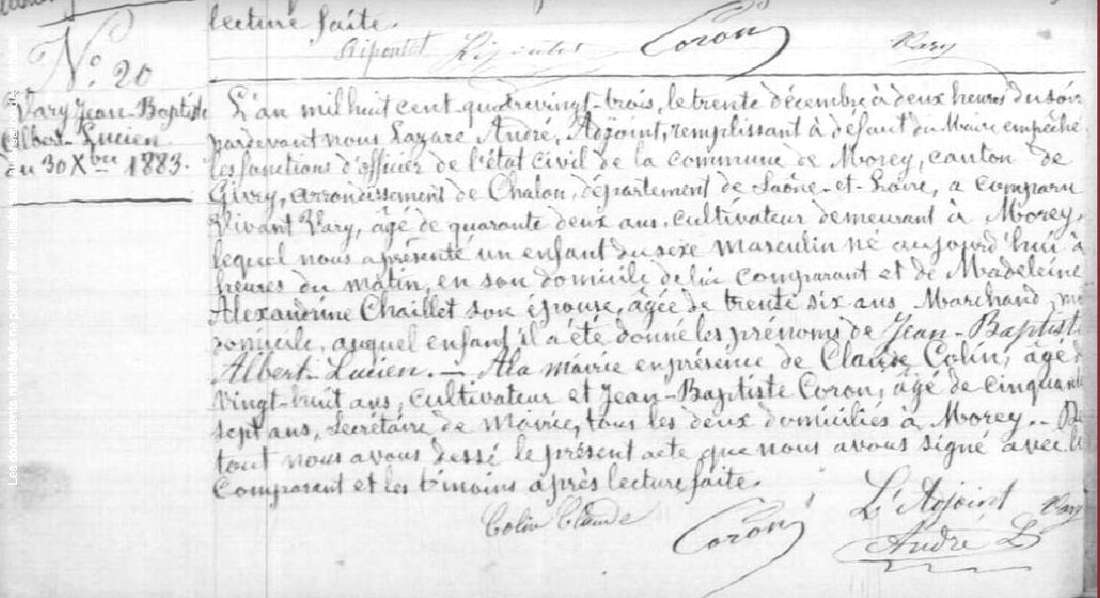 lecture faite.
Ripoulet Coron Vary
N° 20
Vary Jean-Baptiste
Albert-Lucien
du 30 Xbre 1883.
L'an mil huit cent quatrevingt-trois, le trente décembre à deux heures du soir
pardevant nous Lazare André, Adjoint, remplissant à défaut du Maire empêché
les fonctions d'officier de l'état civil de la commune de Morey, canton de
Givry, arrondissement de Chalon, département de Saône-et-Loire, a comparu
Vivant Vary, âgé de quarante deux ans, cultivateur demeurant à Morey,
lequel nous a présenté un enfant du sexe masculin né aujourd'hui à
heures du matin, en son domicile de lui comparant et de Madeleine
Alexandrine Chaillet son épouse, âgée de trente six ans, Marchand,
domicile, auquel enfant il a été donné les prénoms de Jean-Baptiste
Albert-Lucien. — A la mairie en présence de Claude Colin, âgé d
vingt-huit ans, cultivateur et Jean-Baptiste Coron, âgé de cinquante
sept ans, Secrétaire de Mairie, tous les deux domiciliés à Morey.. Du
tout nous avons dessé le présent acte que nous avons signé avec le
Comparant et les témoins après lecture faite.
Colin Claude Coron L'Adjoint Vary
André L